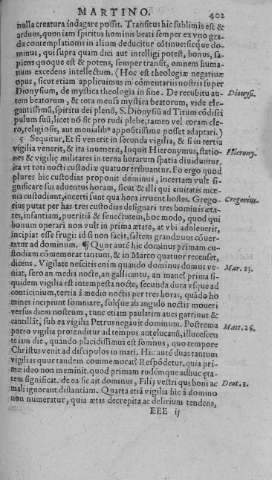 MARTINO. 402
nulla creatura indagare possit. Transitus hic sublimis est &
arduus, quoniam spiritus hominis beati semper ex vno gra
da contemplationis in alium deducitur
minus, qui supra quam dici aut intelligi potest, bonus, sa-
piens quoque est & potens, semper transit, omnem huma-
num excedens intellectum. (Hoc est theologiæ negatiuæ
opus, sicut etiam applicuimus in cõmentariis nostris super
Dionysium, de mystica theologia in fine. De reconditu an-
tem beatorum, & tota mensa beatorum mystica, vide ele-
gantissimã, spiritu dei plenã, S. Dionysii ad Titum
pulum suũ, licet nõ sit pro rudi plebe, tamen vel coram cle-
ro, religiosis, aut monialibus appositissime posset adaptari.)
5 Sequitur, Et si venerit in secunda vigilia, & si in tertia
vigilia venerit, & ita inuenerit, Inquit Hieronymus, statio-
nes & vigilię militares in terna horarum spatia diuiduntur,
ita vt tori nocti custodiæ quatuor tribuantur. Eo ergo quod
plures hic custodias proponit dominus, incertam vult si-
gnificare sui aduentus horam, sicut & illi qui ciuitatis mœ-
nia custodiunt, incerti sunt qua hora irruent hostes. Grego-
rius putat per has tres custodias designari tres hominis æta-
tes, infantiam, pueritiã & senectutem, hoc modo, quod qui
bonum operari non vult in prima ætate, at vbi adoleuerit,
incipiat esse frugi: id si non facit, saltem grandæuus conuer-
tatur ad dominum. ¶ Quare aut hic dominus primam cu-
stodiam commemorat tantum, & in Marco quatuor recenset,
dicens, Vigilate nescitis enim quando dominus domus ve-
niat, sero an media nocte, an galli cantu, an mane? prima si-
quidem vigilia est intempesta nocte, secunda dura vsque ad
conticinium, tertia à medio noctis per tres horas, quãdo ho
mines incipiunt somniare, subque ab angulo noctis moueri
versus diem nostrum, tunc etiam paulatim aues garriunt &
cantillãt, sub ea vigilia Petrus negauit dominum. Postrema
porro vigilia protenditur ad tempus antelucanũ, illucescen
te iam die, quando placidissimus est somnus, quo tempore
Christus venit ad discipulos in mari. Hic autẽ duas tantum
vigilias quar tandem commemorat? Respõdetur, quia pri-
me ideo non meminit, quod primam rudemque adhuc æta-
tem significat, de ea sic ait dominus, Filij vestri qui boni ac
mali ignorant distantiam. Quarta etiã vigilia hic à domino
non numeratur, quia ætas decrepita ac delirium tendens,
EEE ij
Dionys.
Hierony.
Gregorius
Mar. 13.
Matt. 26.
Deut. 1.